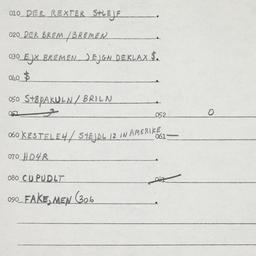 010 DER REXTER S+LEJF
020 DER BREM / BREMEN
030 EJX BREMEN ) EJGN DEKLAX $.
040 $
050 S+8PAKULN / BRILN
052 0
060 KESTELE4 / S+EJDL 12 IN AMERIKE
061 —
070 HO4R
080 CUPUDLT
090 FAKE, MEN (306